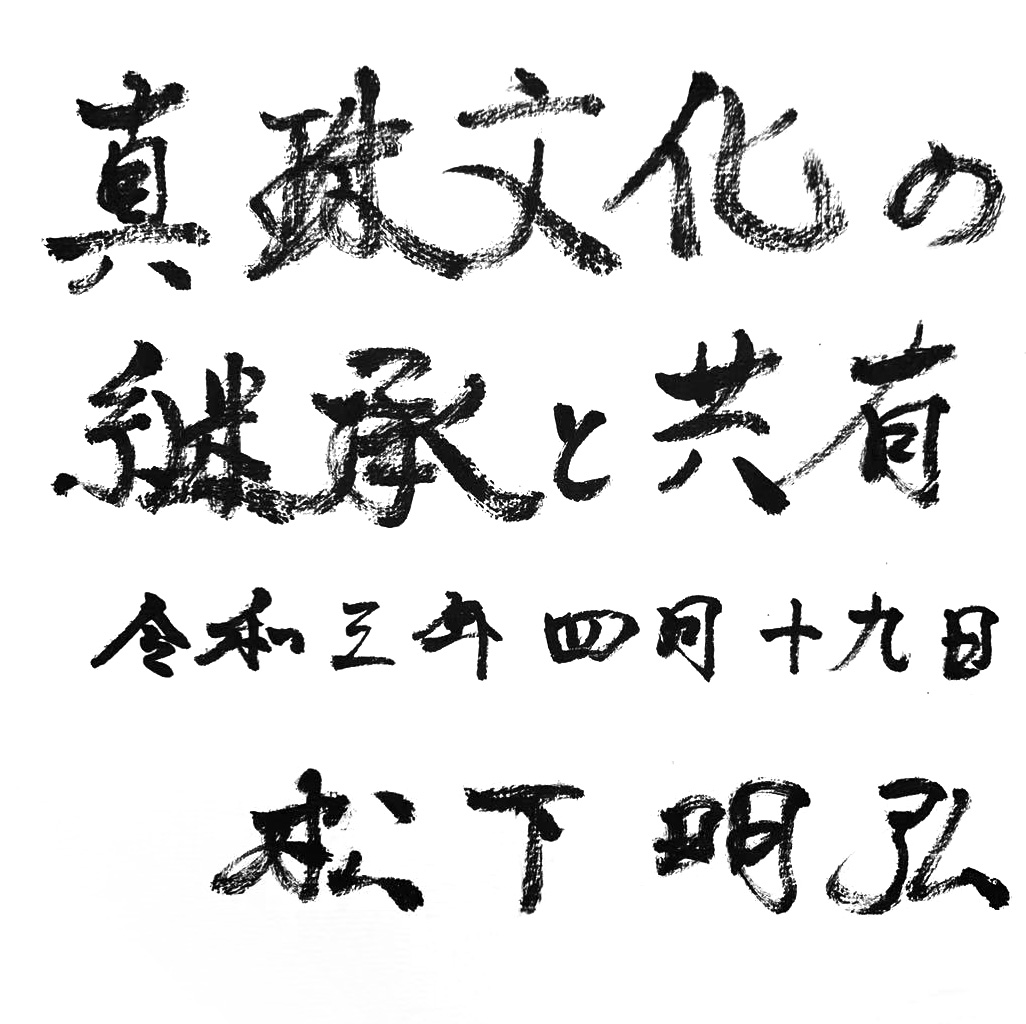 真珠文化の
継承と共有
令和三年四月十九日
松下明弘